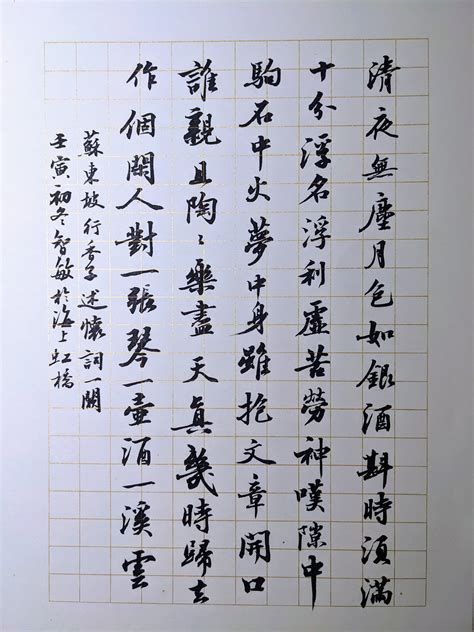 清夜無塵月色如銀酒斟時須滿
十分浮名浮利虛苦勞神嘆隙中
駒石中火夢中身雖抱文章開口
誰親且陶〻樂盡天真幾時歸去
作個閑人對一張琴一壺酒一溪雲
蘇東坡行香子述懷詞一闋
壬寅初冬智敏於海上虹橋